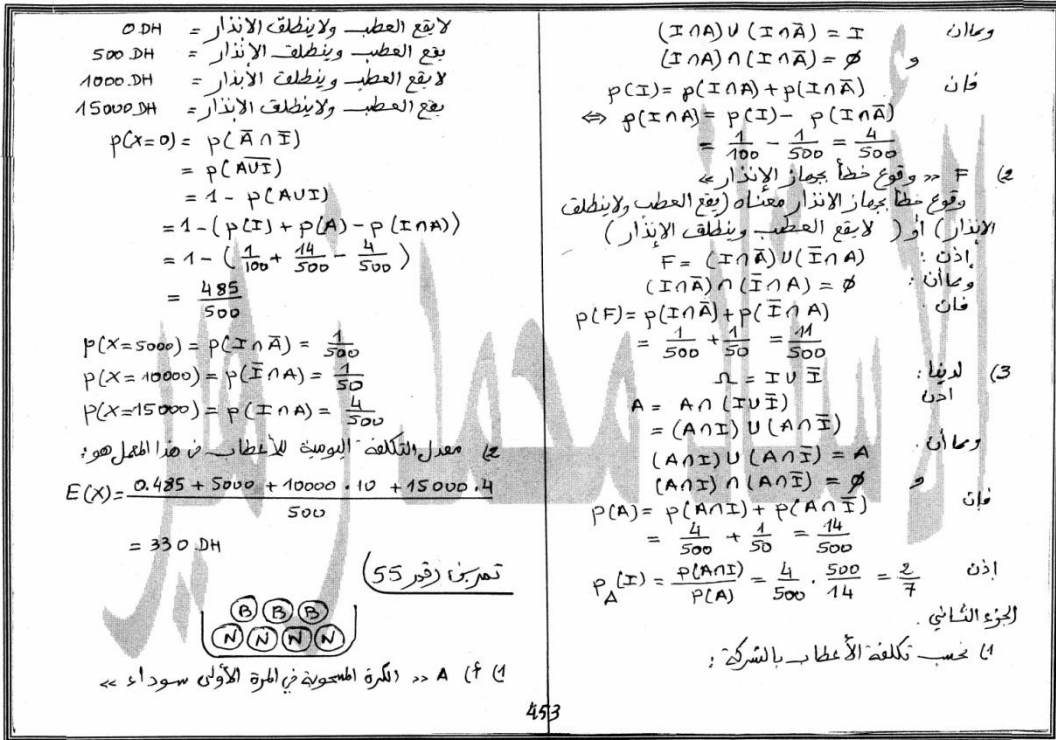 وبماأن (I∩A)∪(I∩Ā) = I
و (I∩A)∩(I∩Ā) = ∅
فإن p(I) = p(I∩A) + p(I∩Ā)
⇔ p(I∩A) = p(I) - p(I∩Ā)
= 1/100 - 1/500 = 4/500
2) F «وقوع خطأ بجهاز الإنذار»
وقوع خطأ بجهاز الانذار معناه (يقع العطب ولاينطلق
الإنذار) أو (لايقع العطب وينطلق الإنذار)
إذن : F = (I∩Ā)∪(Ī∩A)
وبماأن : (I∩Ā)∩(Ī∩A) = ∅
فإن p(F) = p(I∩Ā) + p(Ī∩A)
= 1/500 + 1/50 = 11/500
3) لدينا : Ω = I∪Ī
اذن A = A∩(I∪Ī)
= (A∩I)∪(A∩Ī)
وبماأن. (A∩I)∪(A∩Ī) = A
و (A∩I)∩(A∩Ī) = ∅
فإن p(A) = p(A∩I) + p(A∩Ī)
= 4/500 + 1/50 = 14/500
إذن p_A(I) = p(A∩I)/p(A) = 4/500 . 500/14 = 2/7
الجزء الثاني .
1) نحسب تكلفة الأعطاب بالشركة :
لايقع العطب ولاينطلق الانذار = 0 DH
يقع العطب وينطلق الإنذار = 500 DH
لايقع العطب وينطلق الإنذار = 1000 DH
يقع العطب ولاينطلق الإنذار = 15000 DH
p(X=0) = p(Ā∩Ī)
= p(A̅∪̅I̅)
= 1 - p(A∪I)
= 1 - (p(I) + p(A) - p(I∩A))
= 1 - (1/100 + 14/500 - 4/500)
= 485/500
p(X=5000) = p(I∩Ā) = 1/500
p(X=10000) = p(Ī∩A) = 1/50
p(X=15000) = p(I∩A) = 4/500
2) معدل التكلفة اليومية للأعطاب في هذا المعمل هو:
E(X) = (0.485 + 5000 + 10000.10 + 15000.4)/500
= 330 DH
تمرين رقم 55
B B B
N N N N
1) أ) A «الكرة المسحوبة في المرة الأولى سوداء»
453